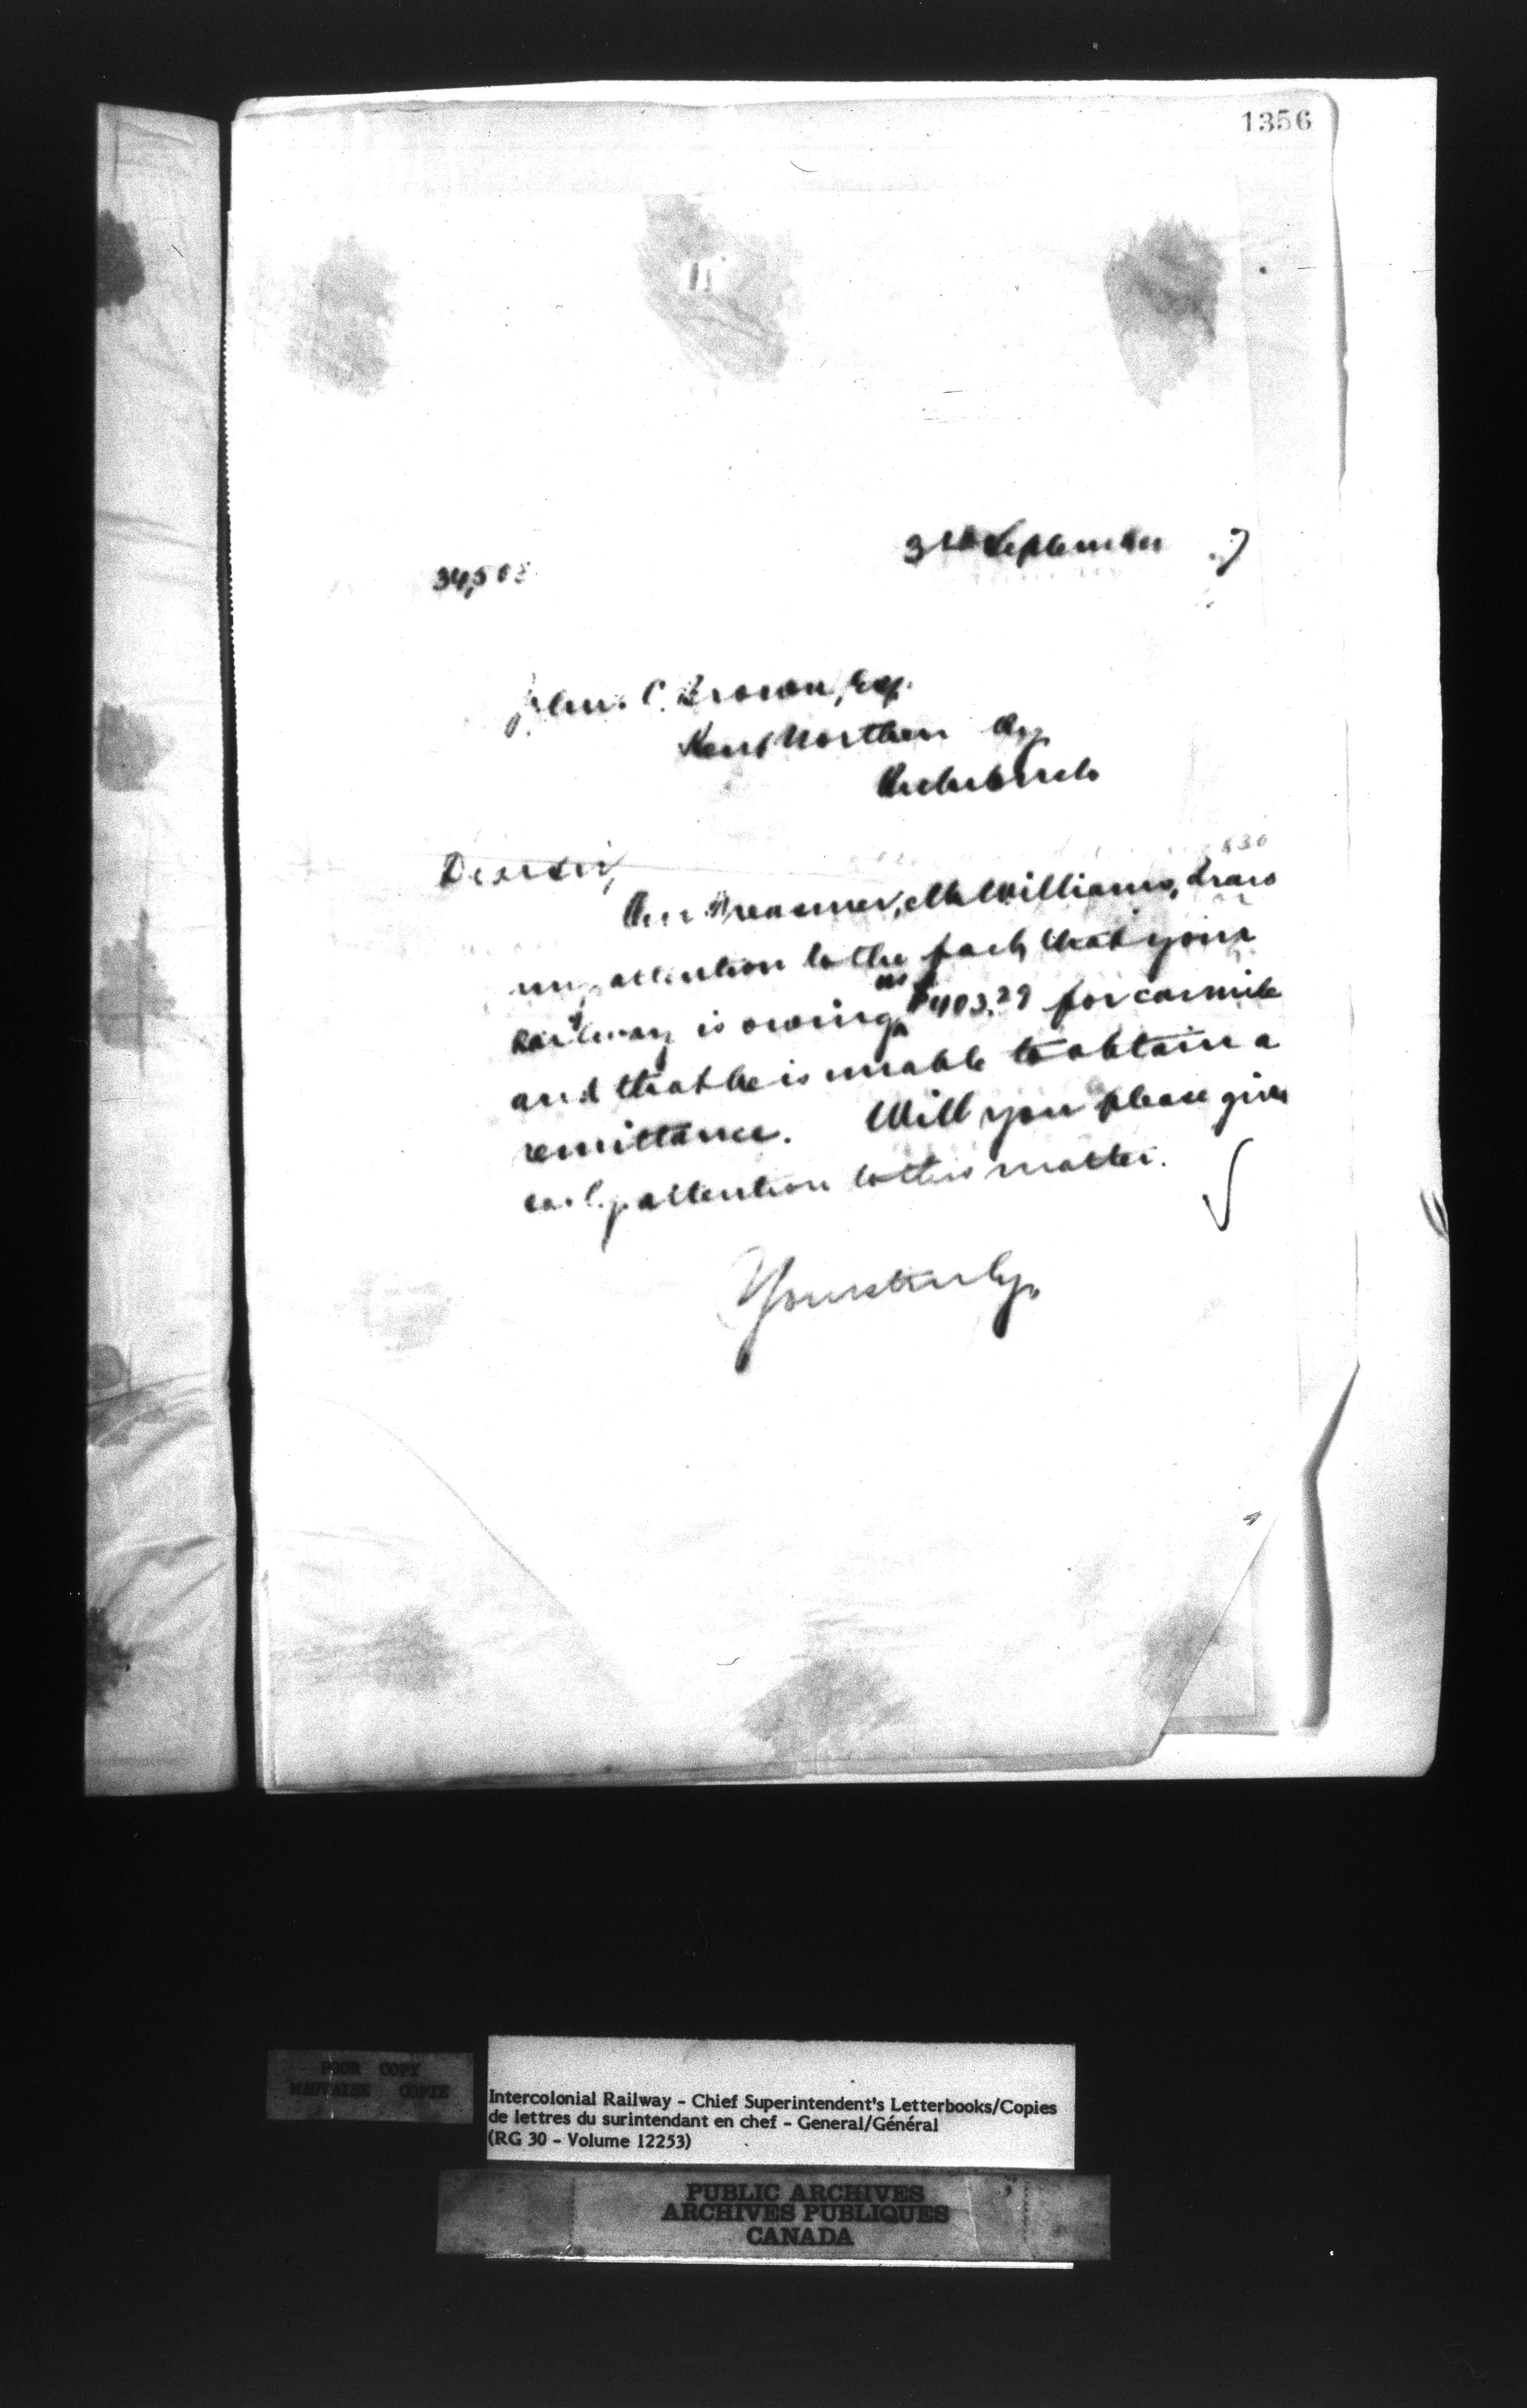 1356
3rd September 7
34,50
John C. Brown, Esq.
Kent Northern Ry
Richibucto
Dear Sir,
Our Treasurer, Mr Williams, draws
my attention to the fact that your
Railway is owing us $403.29 for car mile
and that he is unable to obtain a
remittance. Will you please give
early attention to this matter.
Yours truly,
POOR COPY
MAUVAISE COPIE
Intercolonial Railway - Chief Superintendent's Letterbooks/Copies
de lettres du surintendant en chef - General/Général
(RG 30 - Volume 12253)
PUBLIC ARCHIVES
ARCHIVES PUBLIQUES
CANADA